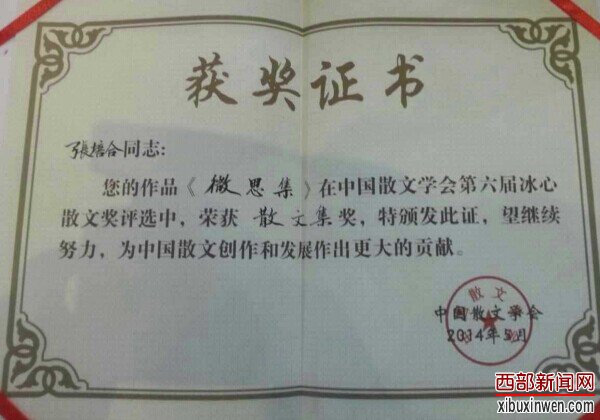 获奖证书
张培合同志:
您的作品《微思集》在中国散文学会第六届冰心
散文奖评选中,荣获 散文集奖,特颁发此证,望继续
努力,为中国散文创作和发展作出更大的贡献。
散文
中国散文学会
2014年5月
西部新闻网
xibuxinwen.com